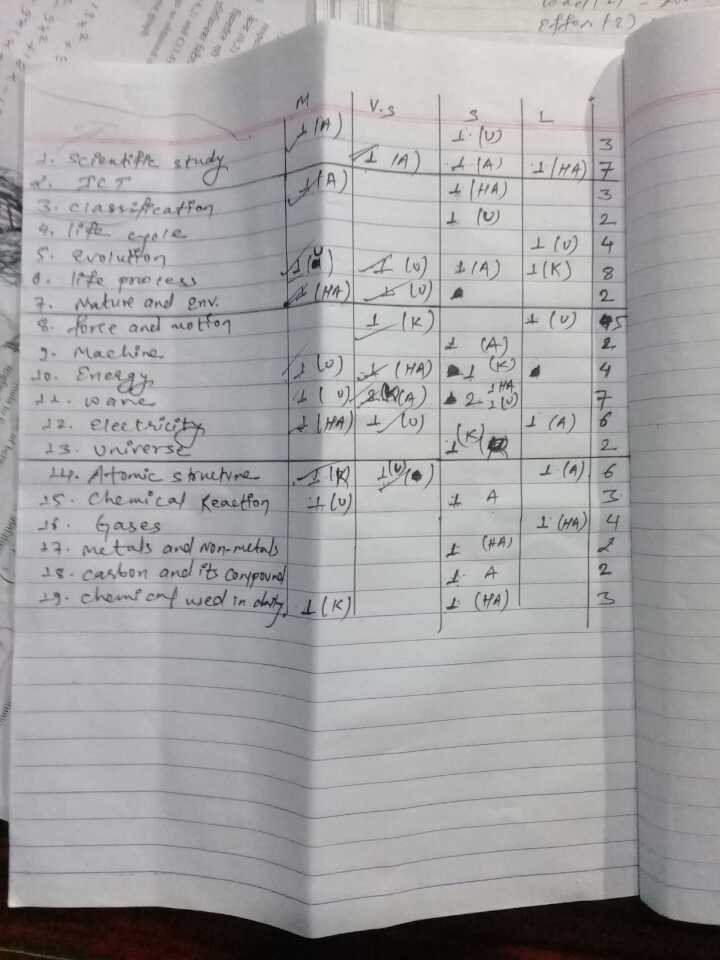 effort (2)
M V.S S L
1 (A) 1 (U) 3
1. Scientific study 1 (A) 1 (A) 1 (HA) 7
2. ICT 1 (A) 1 (HA) 3
3. classification 1 (U) 2
4. life cycle 1 (U) 4
5. evolution 1 (U) 1 (U) 1 (A) 1 (K) 8
6. life process 1 (HA) 1 (U) 2
7. Nature and env.
8. force and motion 1 (K) 1 (U) 5
9. Machine 1 (A) 2
10. Energy 1 (U) 1 (HA) 1 (K) 4
11. wave 1 (U) 2 (A) 2 1 HA 1 (U) 7
12. electricity 1 (HA) 1 (U) 1 (A) 6
13. universe 1 (K) 2
14. Atomic structure 1 (K) 1 (U) 1 (A) 6
15. Chemical Reaction 1 (U) 1 A 3
16. Gases 1 (HA) 4
17. metals and Non-metals 1 (HA) 2
18. carbon and its compound 1 A 2
19. chemical used in daily 1 (K) 1 (HA) 3